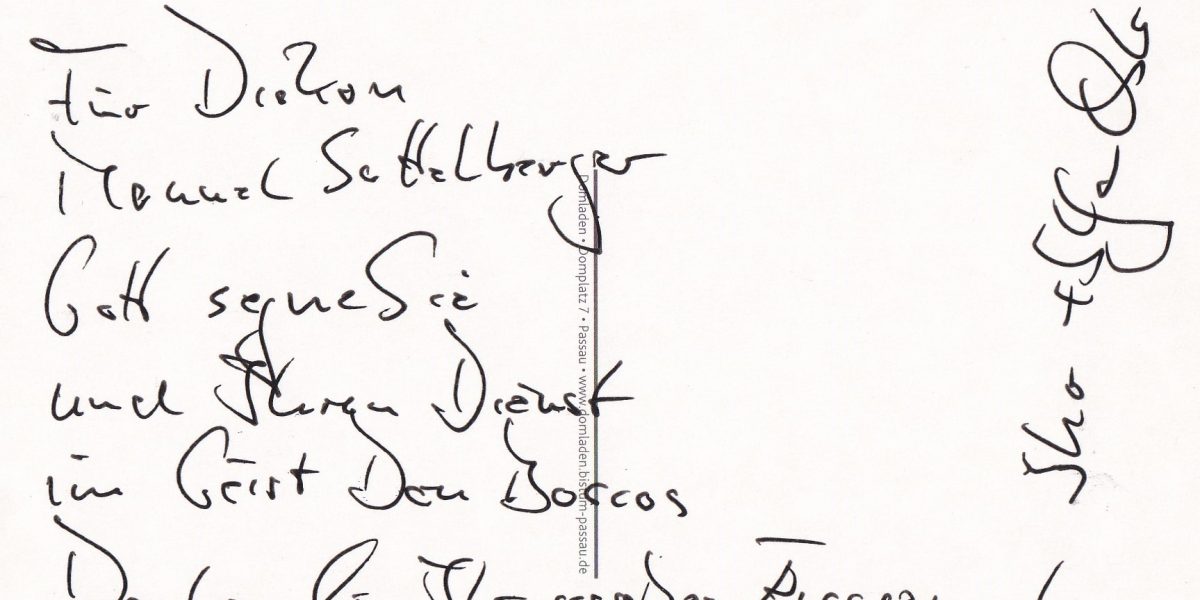 Für Diakon
Manuel Sattelberger
Gott segne Sie
und Ihren Dienst
im Geist Don Boscos
Domladen • Domplatz 7 • Passau • www.domladen.bistum-passau.de
Ihr +